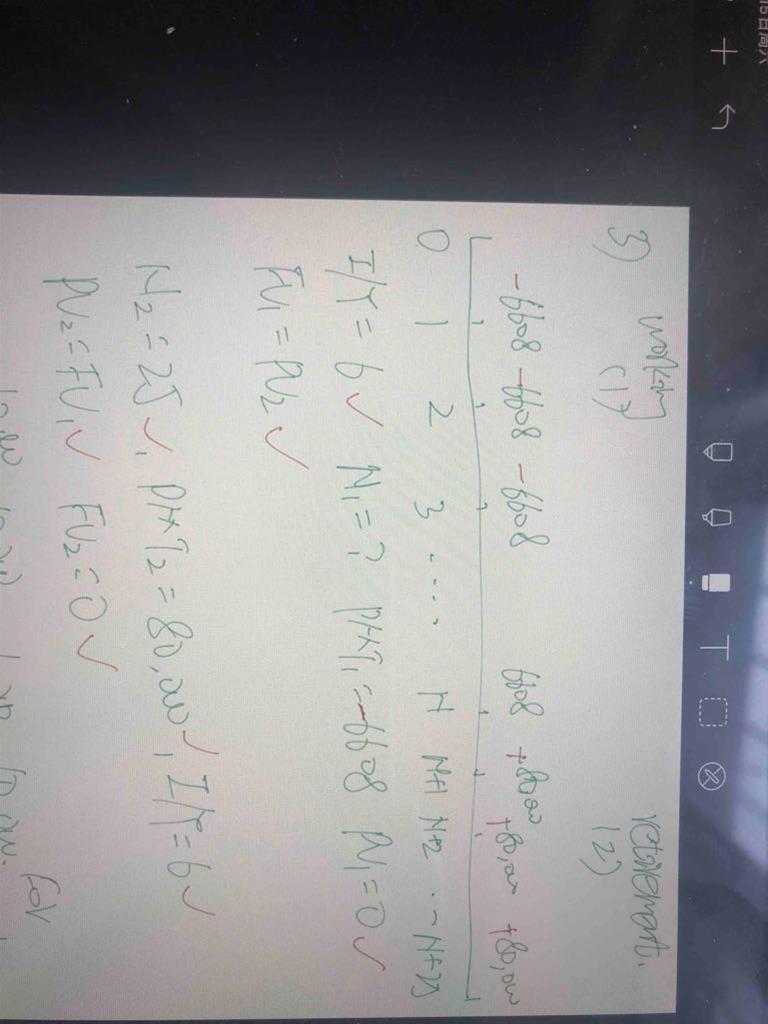 3) working retirement.
(1) (2)
-6608 -6608 -6608 6608 +80,000 +80,000 +80,000
0 1 2 3 .... N N+1 N+2 .. N+25
I/Y = 6 ✓ N₁ = ? PMT₁ = -6608 PV₁ = 0 ✓
FV₁ = PV₂ ✓
N₂ = 25 ✓, PMT₂ = 80,000 ✓, I/Y = 6 ✓
PV₂ = FV₁ ✓ FV₂ = 0 ✓
for